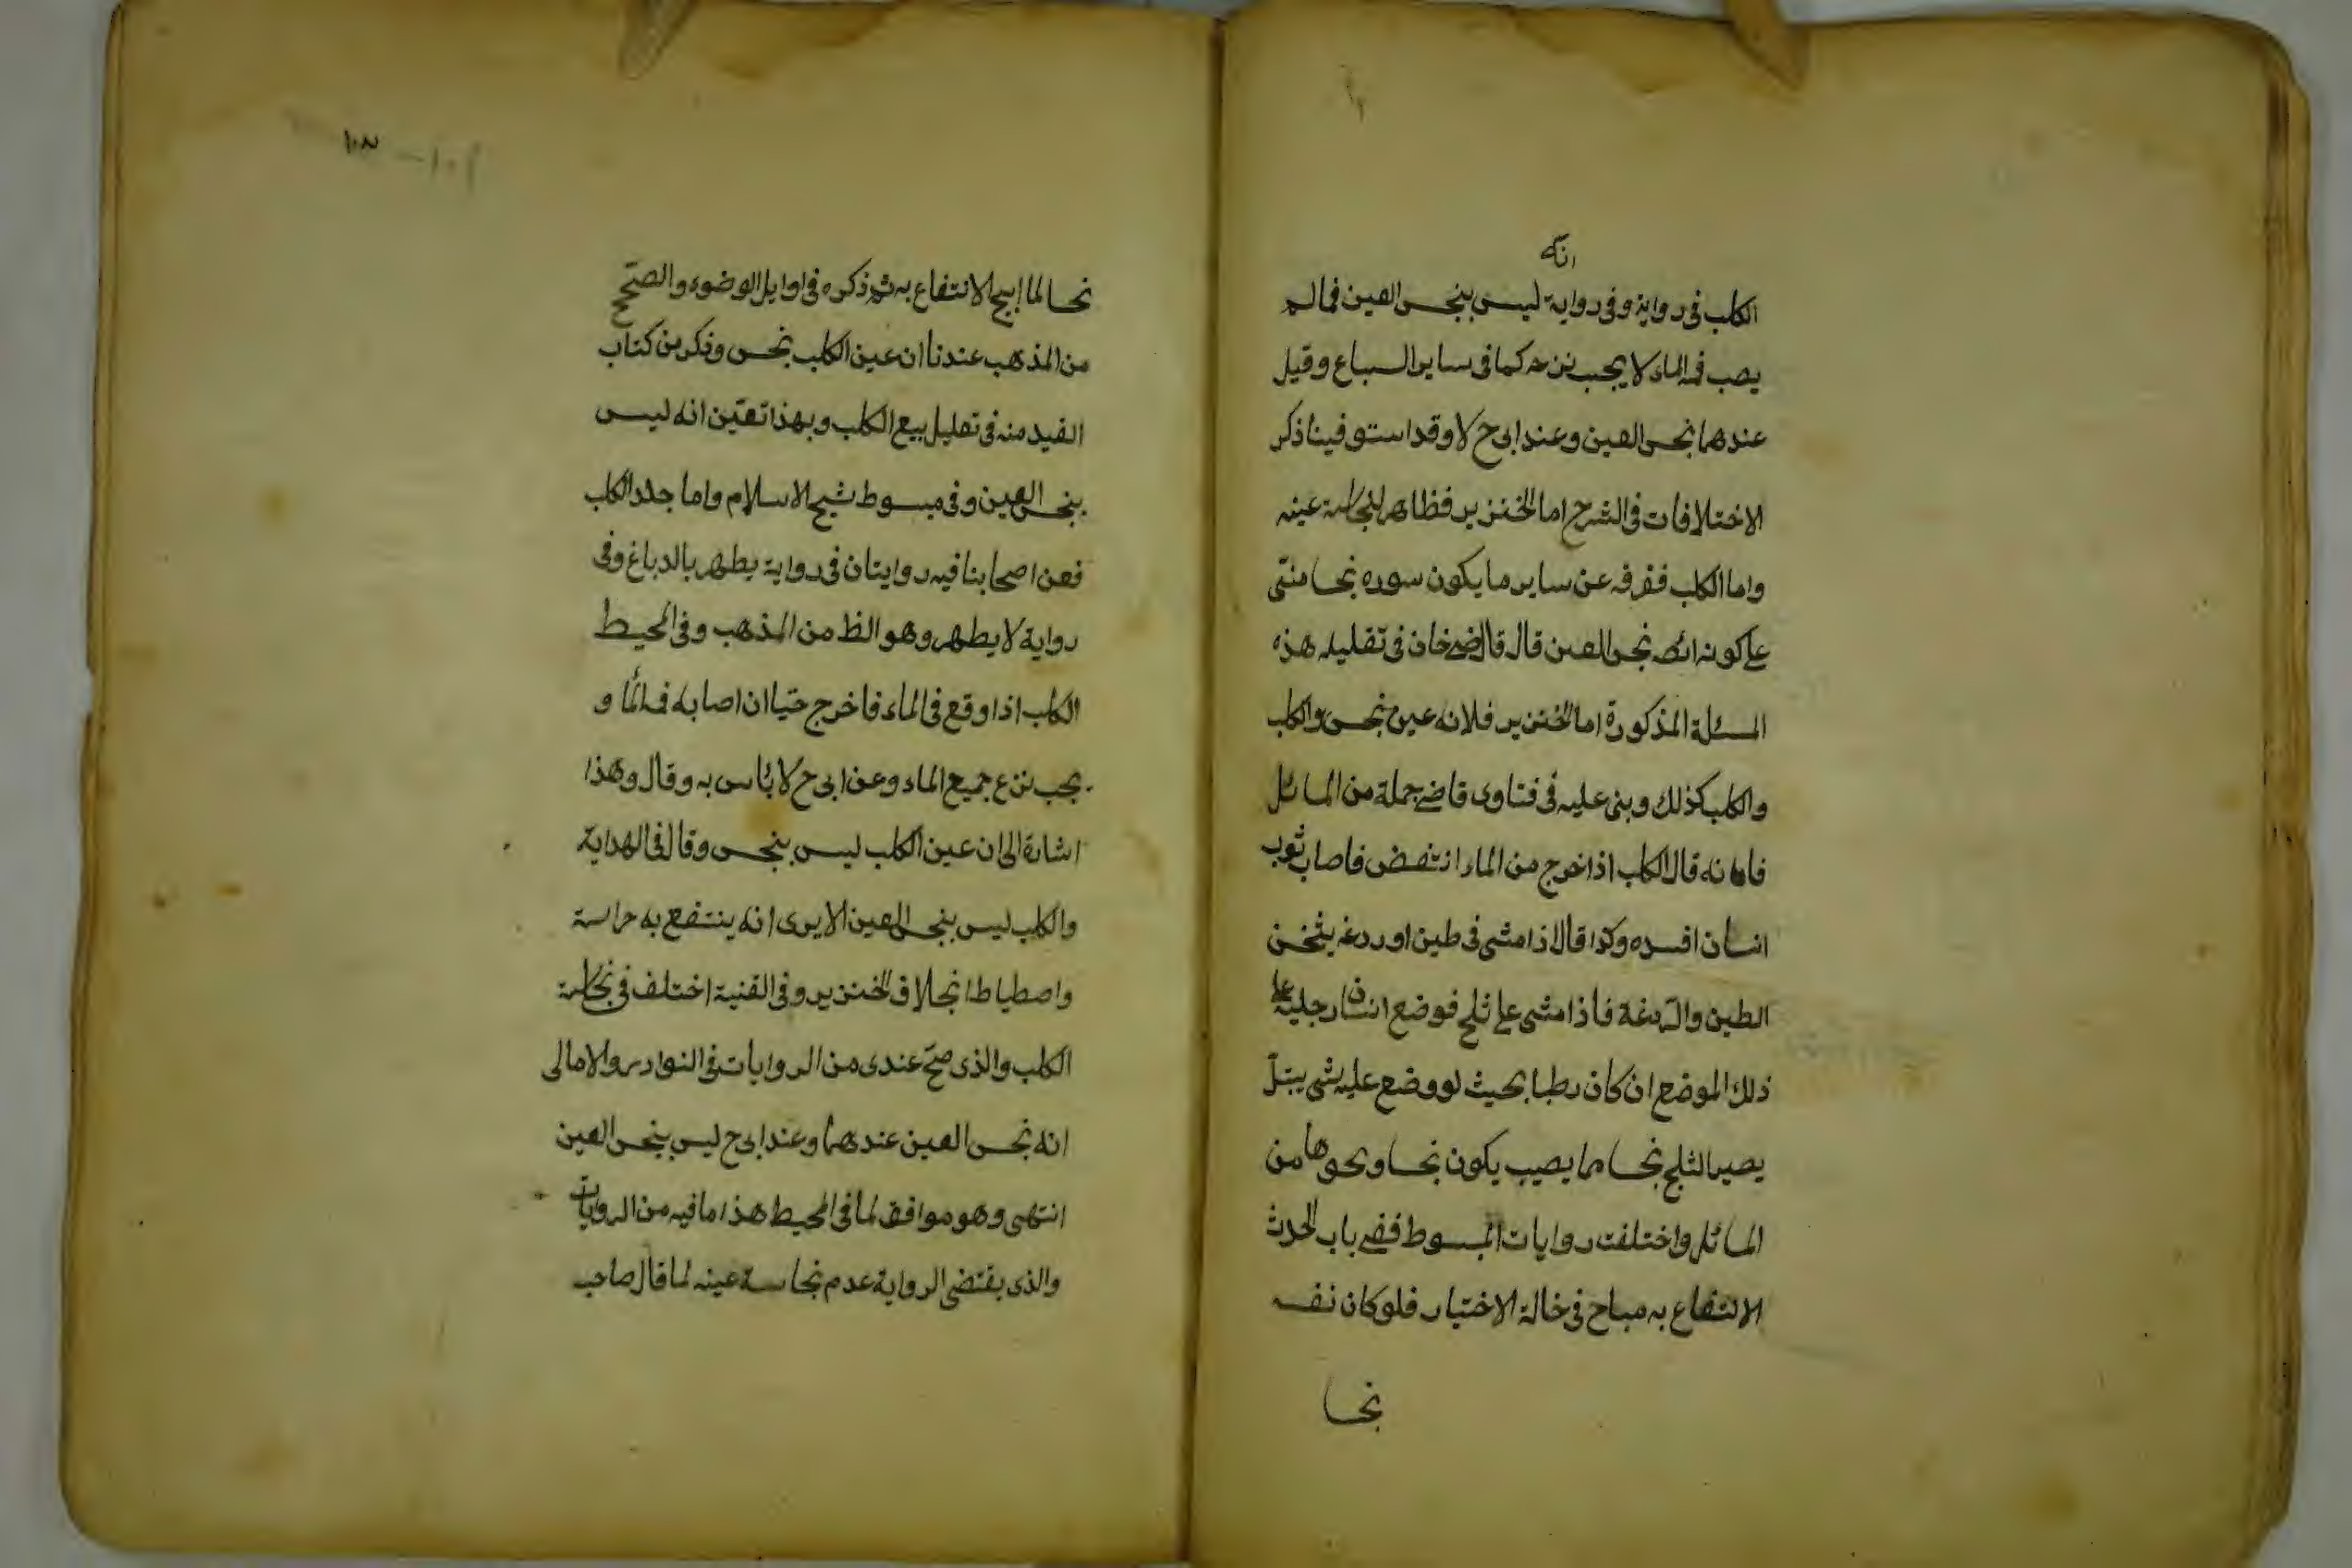 انه
الكلب فى رواية وفى رواية ليس بنجس العين فمالم
يصب فمه الماء لا يجب نزحه كما فى ساير السباع وقيل
عندهما نجس العين وعند ابى ح لا وقد استوفينا ذكر
الاختلافات فى الشرح اما الخنزير فظاهر لنجاسة عينه
واما الكلب ففرقه عن ساير ما يكون سوره نجسا منتى
على كونه ايضه نجس العين قال قاضى خان فى تعليله هذه
المسئلة المذكورة اما الخنزير فلانه عينه نجس والكلب
والكلب كذلك وبنى عليه فى فتاوى قاضى جملة من المسائل
فانه قال الكلب اذا خرج من الماء انتفض فاصاب ثوب
انسان افسده وكذا قال اذا مشى فى طين او ردغه يثخن
الطين والردغة فاذا مشى على ثلج فوضع انسان رجليه على
ذلك الموضع ان كان رطبا بحيث لو وضع عليه شى يبتل
يصير الثلج نجسا ما يصيب يكون نجسا ونحوها من
المسائل واختلفت روايات المبسوط ففى باب الحدث
الانتفاع به مباح فى حالة الاختيار فلو كان نفسه
نجسا
١٠٣
نجسا لما ابيح الانتفاع به ثم ذكره فى اوايل الوضوء والصحيح
من المذهب عندنا ان عين الكلب نجس وذكر من كتاب
الصيد منه فى تعليل بيع الكلب وبهذا تعين انه ليس
بنجس العين وفى مبسوط شيخ الاسلام واما جلد الكلب
فعن اصحابنا فيه روايتان فى رواية يطهر بالدباغ وفى
رواية لا يطهر وهو الظ من المذهب وفى المحيط
الكلب اذا وقع فى الماء فاخرج حيا ان اصابه فمه الما و
يجب نزع جميع الماء وعن ابى ح لا بأس به وقال وهذا
اشارة الى ان عين الكلب ليس بنجس وقال فى الهداية
والكلب ليس بنجس العين الا يرى انه ينتفع به حراسة
واصطياطا بخلاف الخنزير وفى القنية اختلف فى نجاسة
الكلب والذى صح عندى من الروايات فى النوادر والامالى
انه نجس العين عندهما وعند ابى ح ليس بنجس العين
انتهى وهو موافق لما فى المحيط هذا ما فيه من الروايات
والذى يقتضى الرواية عدم نجاسة عينه لما قال صاحب